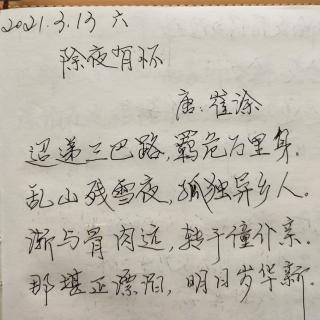 2021.3.13 六
除夜有怀
唐:崔涂
迢递三巴路,羁危万里身.
乱山残雪夜,孤独异乡人.
渐与骨肉远,转于僮仆亲.
那堪正漂泊,明日岁华新.